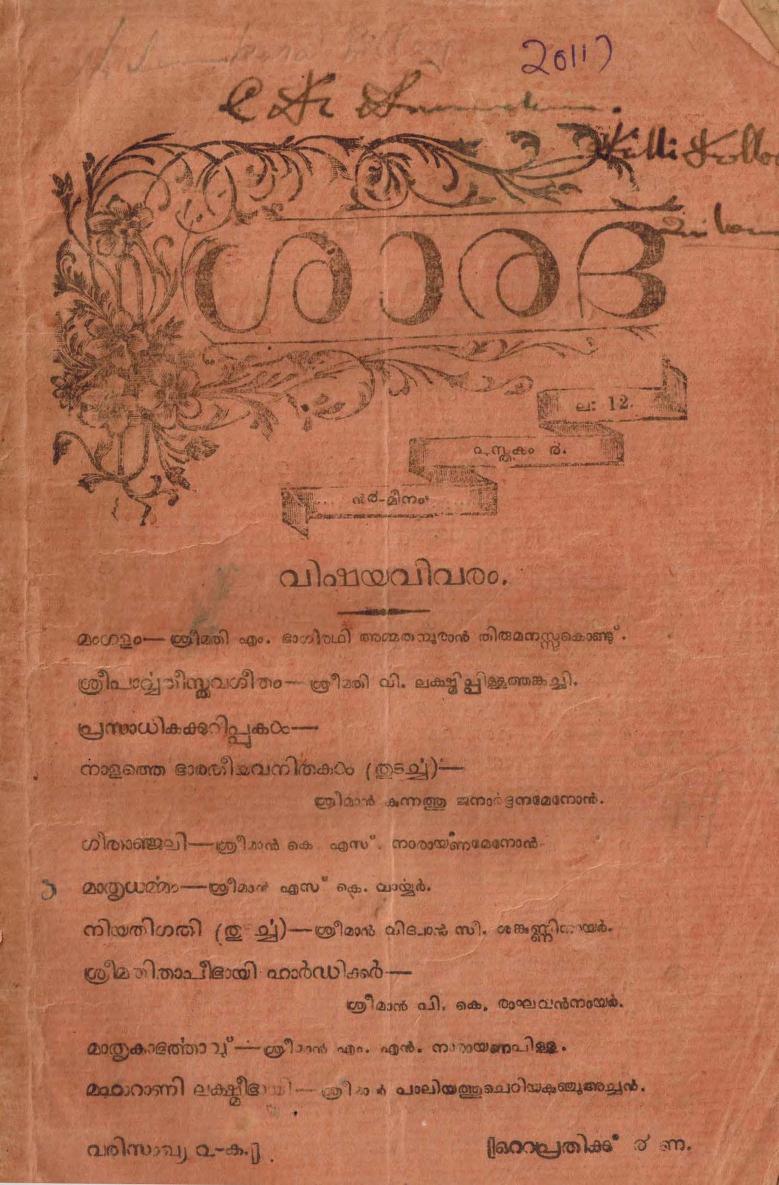 2011
ശാരദ
ല: 12.
പുസ്തകം ൪.
മീനം
വിഷയവിവരം.
മംഗളം— ശ്രീമതി എം. ഭാഗിരഥി അമ്മതമ്പുരാൻ തിരുമനസ്സുകൊണ്ടു്.
ശ്രീപാർവ്വതീസ്തവഗീതം— ശ്രീമതി വി. ലക്ഷ്മിപ്പിള്ളത്തങ്കച്ചി.
പ്രസാധികക്കുറിപ്പുകൾ—
നാളത്തെ ഭാരതീയവനിതകൾ (തുടർച്ച)—
ശ്രീമാൻ കുന്നത്തു ജനാർദ്ദനമേനോൻ.
ഗീതാഞ്ജലി—ശ്രീമാൻ കെ എസ്. നാരായണമേനോൻ
മാതൃധർമ്മം—ശ്രീമാൻ എസ് കെ. വായ്യർ.
നിയതിഗതി (തുടർച്ച)—ശ്രീമാൻ വിദ്വാൻ സി. ശങ്കുണ്ണിനായർ.
ശ്രീമതി ഹാർഡിക്കർ—
ശ്രീമാൻ പി. കെ, രാഘവൻനായർ.
മാതൃകാഭർത്താവു്—ശ്രീമാൻ എം. എൻ. നാരായണപിള്ള.
മഹാറാണി ലക്ഷ്മീഭായി— ശ്രീമാൻ പാലിയത്തുചെറിയകുഞ്ഞുഅച്ചൻ.
വരിസംഖ്യ ൨-ക.
ഒറ്റപ്രതിക്ക് ൪ ണ.